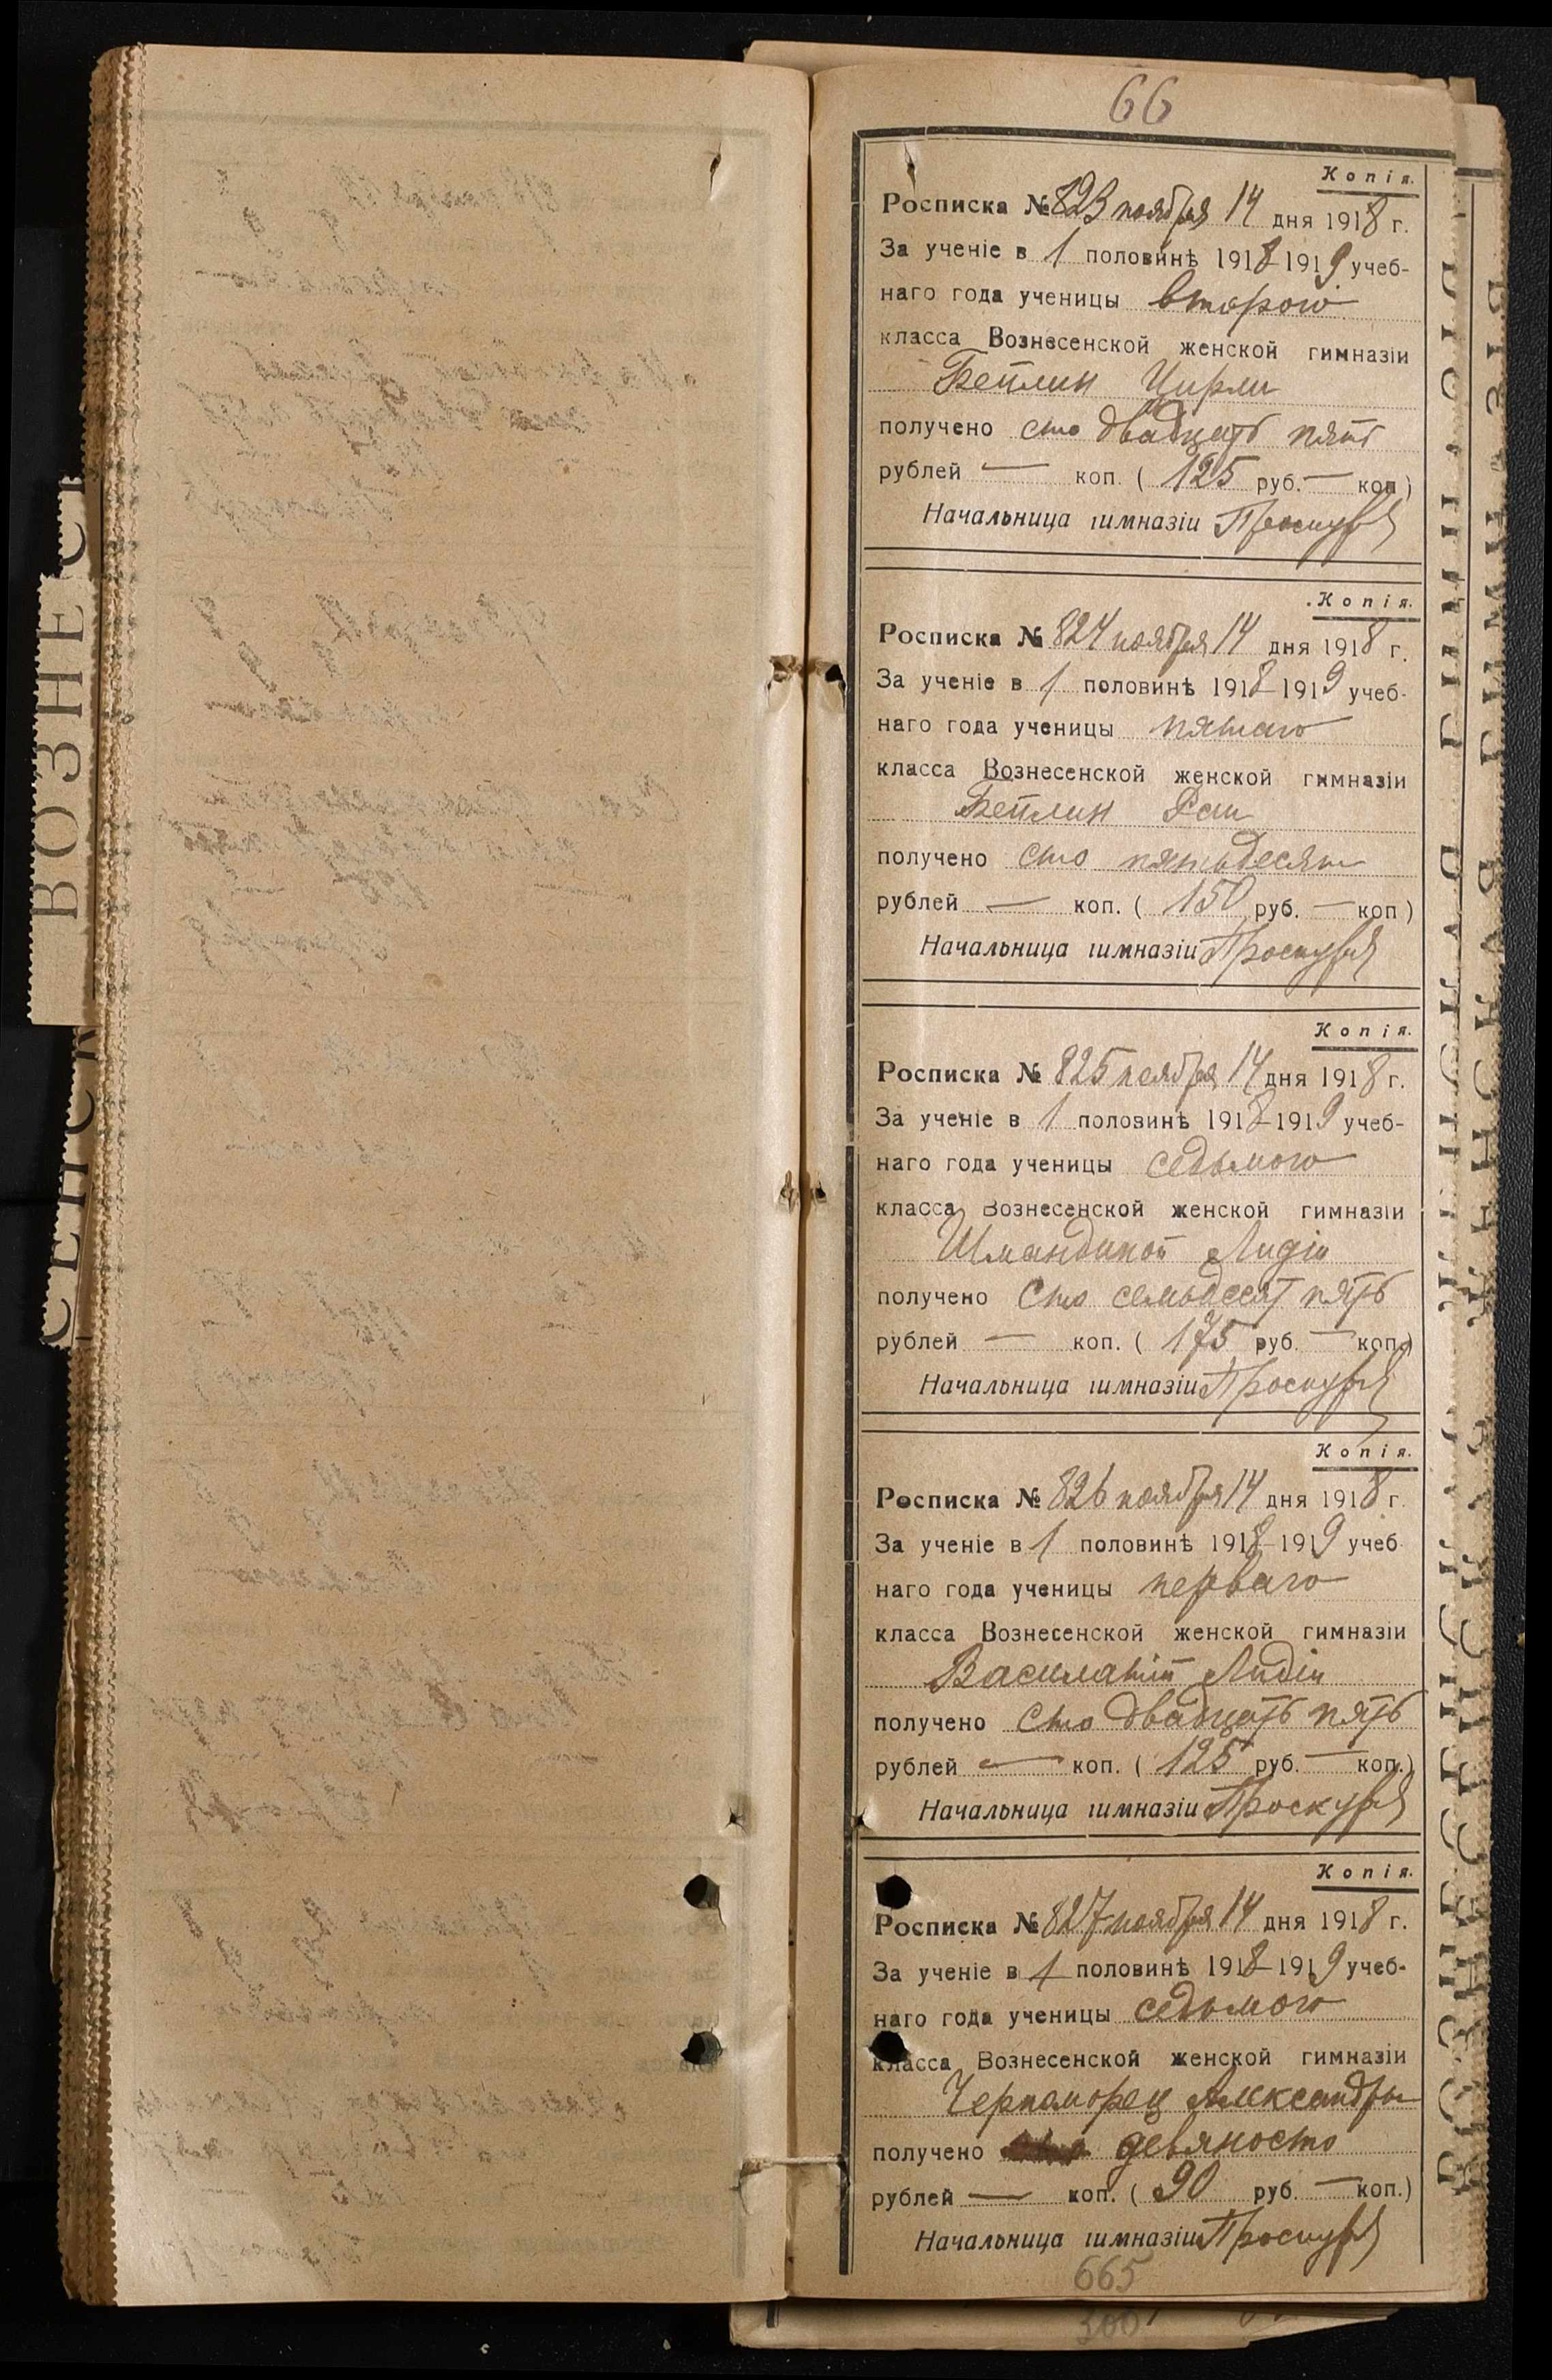 66
Копія.
Росписка № 823 ноября 14 дня 1918 г.
За ученіе в 1 половинѣ 1918-1919 учеб-
наго года ученицы второго
класса Вознесенской женской гимназіи
Бейлин Цирли
получено сто двадцать пять
рублей — коп. ( 125 руб. — коп )
Начальница гимназіи Проскур
Копія.
Росписка № 824 ноября 14 дня 1918 г.
За ученіе в 1 половинѣ 1918-1919 учеб-
наго года ученицы пятаго
класса Вознесенской женской гимназіи
Бейлин
получено сто пятьдесят
рублей — коп. ( 150 руб. — коп )
Начальница гимназіи Проскур
Копія.
Росписка № 825 ноября 14 дня 1918 г.
За ученіе в 1 половинѣ 1918-1919 учеб-
наго года ученицы седьмого
класса Вознесенской женской гимназіи
Шмандиной Лидіи
получено сто семьдесят пять
рублей — коп. ( 175 руб. — коп.)
Начальница гимназіи Проскур
Копія.
Росписка № 826 ноября 14 дня 1918 г.
За ученіе в 1 половинѣ 1918-1919 учеб-
наго года ученицы перваго
класса Вознесенской женской гимназіи
Василатій Лидіи
получено сто двадцать пять
рублей — коп. ( 125 руб. — коп.)
Начальница гимназіи Проскур
Копія.
Росписка № 827 ноября 14 дня 1918 г.
За ученіе в 1 половинѣ 1918-1919 учеб-
наго года ученицы седьмого
класса Вознесенской женской гимназіи
Черноморец Александры
получено девяносто
рублей — коп. ( 90 руб. — коп.)
Начальница гимназіи Проскур
665
300
ВОЗНЕС